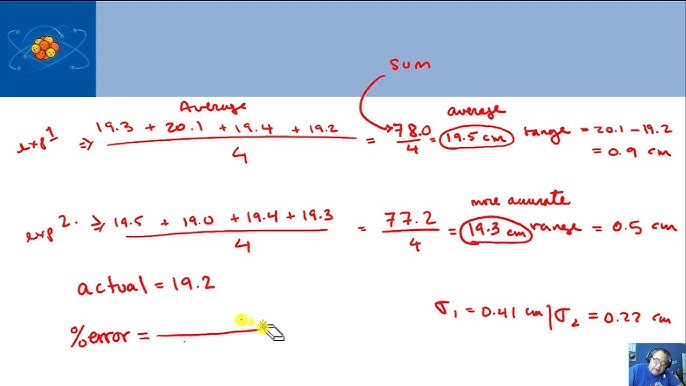 sum
Average
average
exp 1 ⇒ 19.3 + 20.1 + 19.4 + 19.2 / 4 = 78.0 / 4 = 19.5 cm range = 20.1 - 19.2
= 0.9 cm
more accurate
exp 2. ⇒ 19.5 + 19.0 + 19.4 + 19.3 / 4 = 77.2 / 4 = 19.3 cm range = 0.5 cm
actual = 19.2
σ1 = 0.41 cm / σ2 = 0.22 cm
% error =